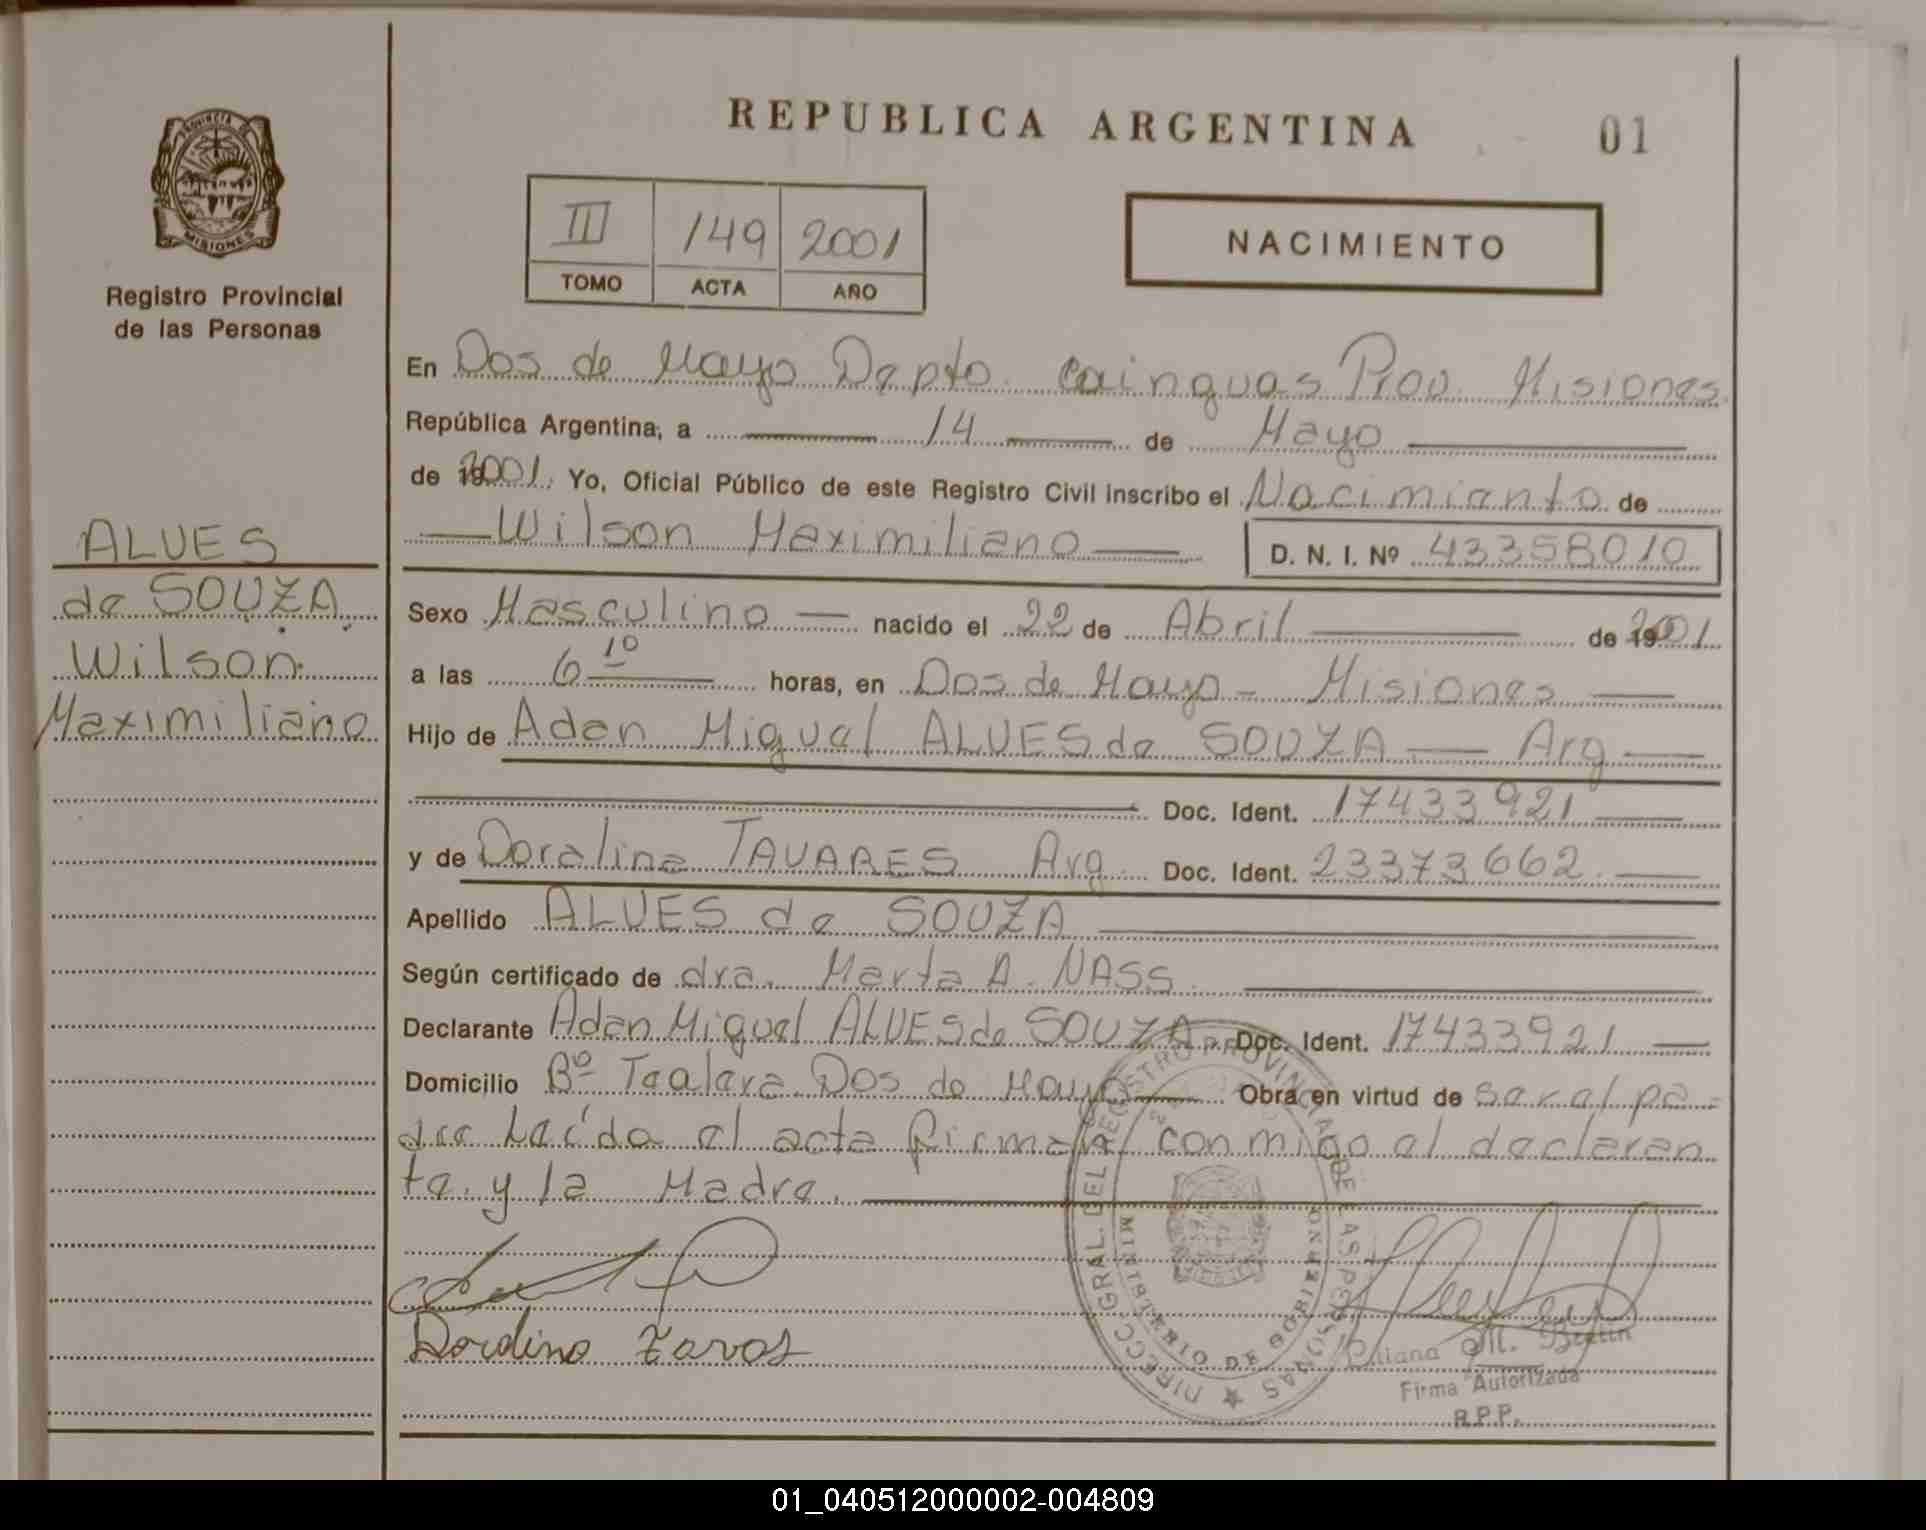 REPUBLICA ARGENTINA
01
PROVINCIA DE
MISIONES
Registro Provincial
de las Personas
III 149 2001
TOMO ACTA AÑO
NACIMIENTO
En Dos de Mayo Depto. Cainguas Prov. Misiones
República Argentina, a 14 de Mayo
de 2001. Yo, Oficial Público de este Registro Civil inscribo el Nacimiento de
Wilson Maximiliano
D. N. I. Nº 43358010
ALVES
de SOUZA
Wilson
Maximiliano
Sexo Masculino nacido el 22 de Abril de 2001
a las 6 10 horas, en Dos de Mayo - Misiones
Hijo de Adan Miguel ALVES de SOUZA Arg
Doc. Ident. 17433921
y de Doralina TAVARES Arg. Doc. Ident. 23373662
Apellido ALVES de SOUZA
Según certificado de dra. Marta A. NASS
Declarante Adan Miguel ALVES de SOUZA Doc. Ident. 17433921
Domicilio Bº Tealera Dos de Mayo Obra en virtud de ser el pa-
dre Leída el acta firman conmigo el declaran
te y la Madre.
DIRECC. GRAL. DEL REGISTRO PROVINCIAL DE LAS PERSONAS
MINISTERIO DE GOBIERNO
M.
Firma Autorizada
R.P.P.
01_040512000002-004809